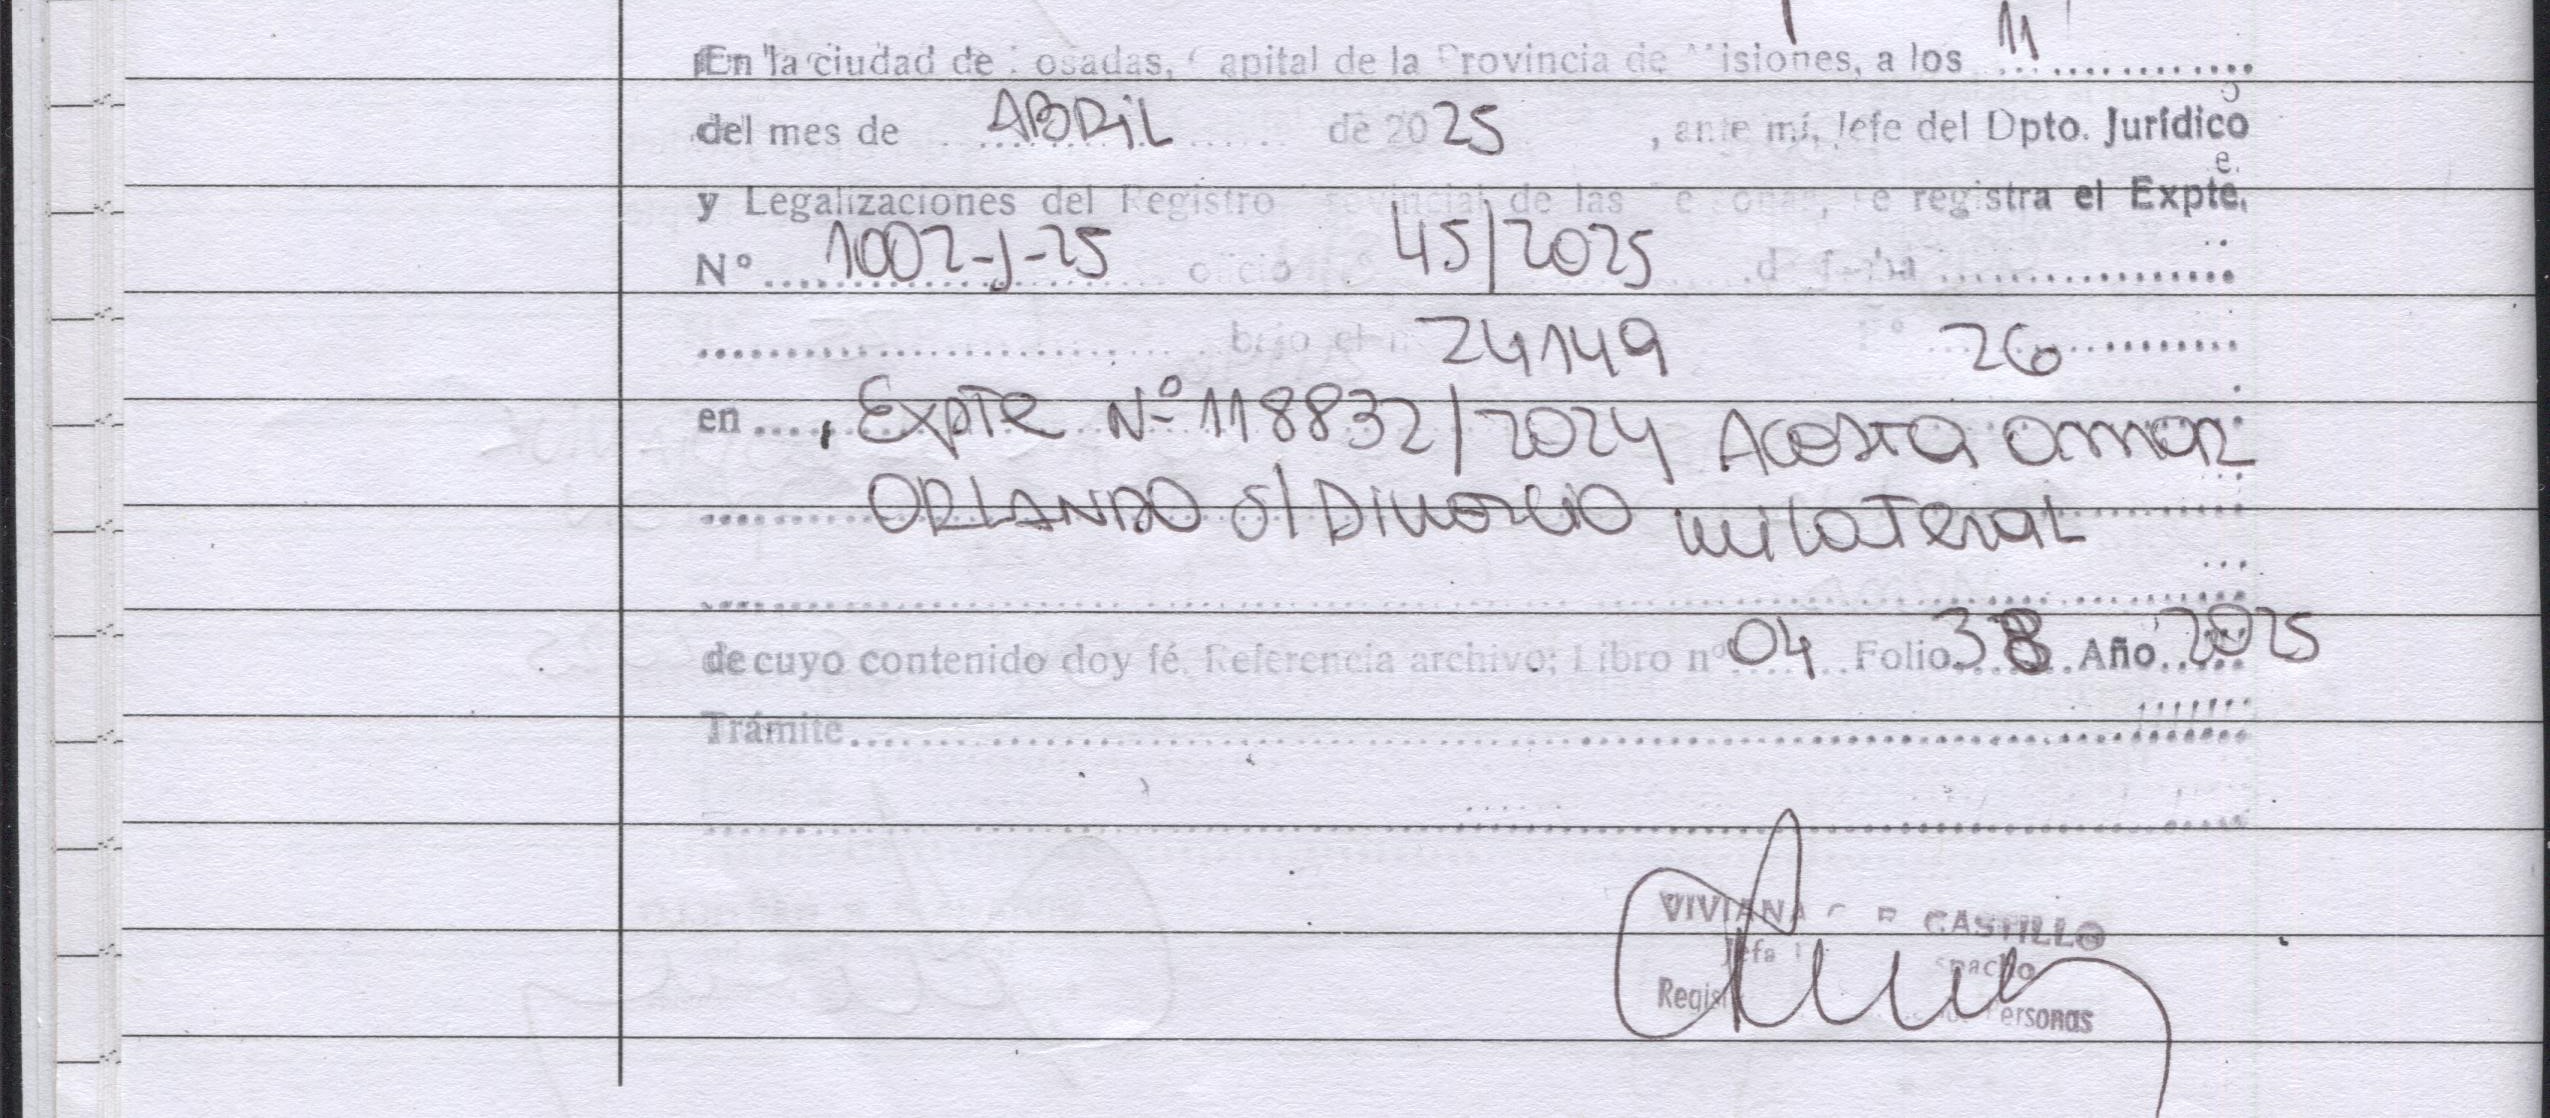 En la ciudad de Posadas, Capital de la Provincia de Misiones, a los 11
del mes de ABRIL de 2025, ante mí, Jefe del Dpto. Jurídico
y Legalizaciones del Registro Provincial de las Personas, se registra el Expte.
N° 1002-J-25 oficio 45/2025 de fecha
bajo el n° 24149 F° 26
en, Expte Nº 118832/2024 Acosta Omar
ORLANDO s/ Divorcio unilateral
de cuyo contenido doy fé. Referencia archivo: Libro n° 04 Folio 38 Año 2025
Trámite
VIVIANA CASTILLO
Jefa
Personas